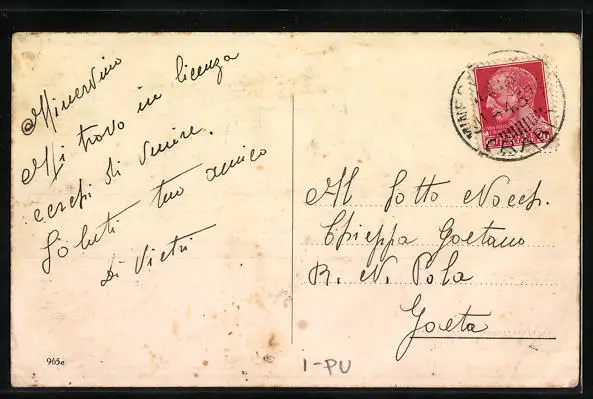 Minervino
Mi trovo in licenza
cerchi di venire.
Saluti tuo amico
Di Vietri
Al Sotto Nocch.
Chieppa Gaetano
R. N. Pola
Gaeta
965e
1-PU